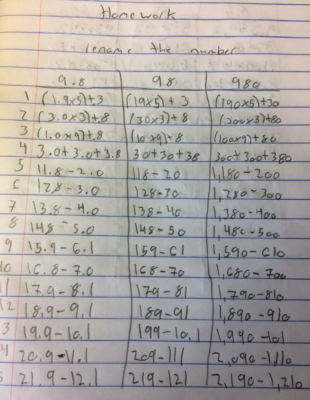 Homework
rename the number
9.8 98 980
1 (1.9x5)+3 (19x5)+3 (190x5)+30
2 (3.0x3)+.8 (30x3)+8 (300x3)+80
3 (1.0x9)+.8 (10x9)+8 (100x9)+80
4 3.0+3.0+3.8 30+30+38 300+300+380
5 11.8-2.0 118-20 1,180-200
6 12.8-3.0 128-30 1,280-300
7 13.8-4.0 138-40 1,380-400
8 148-5.0 148-50 1,480-500
9 15.9-6.1 159-61 1,590-610
10 16.8-7.0 168-70 1,680-700
11 17.9-8.1 179-81 1,790-810
12 18.9-9.1 189-91 1,890-910
3 19.9-10.1 199-10.1 1,990-101
4 20.9-11.1 209-111 2,090-1,110
5 21.9-12.1 219-121 2,190-1,210